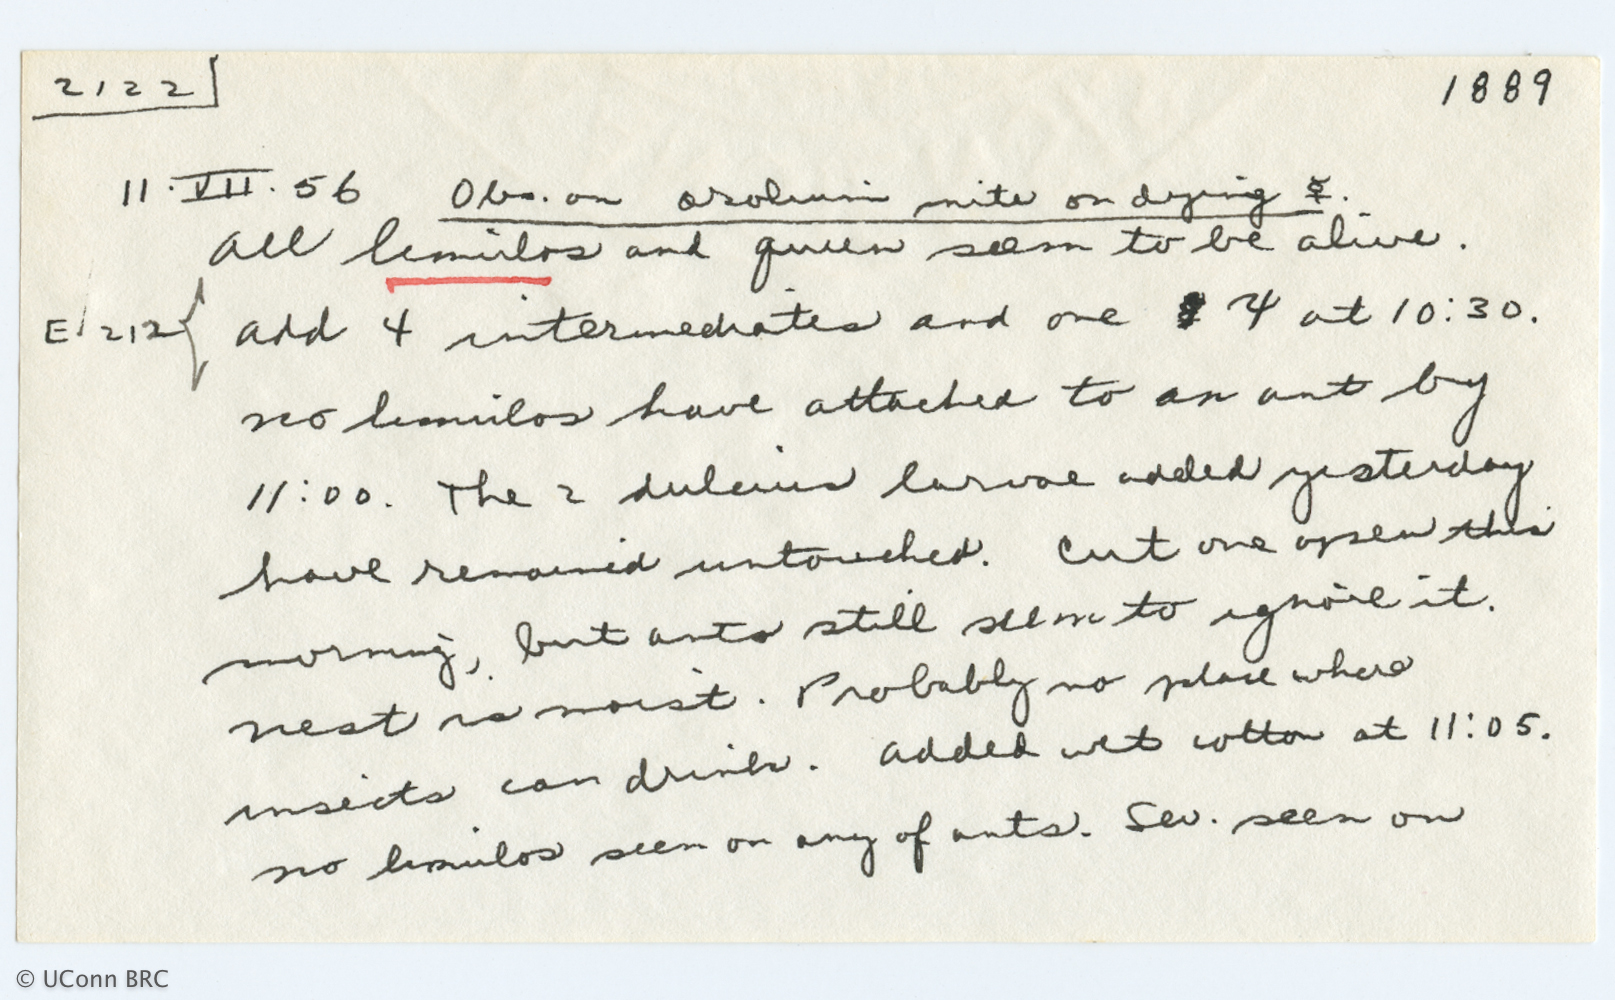 2122
1889
11.VII.56 Obs. on arolium mite on dying ☿.
All limulos and queen seem to be alive.
E-212 { Add 4 intermediates and one ♃ at 10:30.
No limulos have attached to an ant by
11:00. The 2 dulcius larvae added yesterday
have remained untouched. Cut one open this
morning, but ants still seem to ignore it.
Nest is moist. Probably no place where
insects can drink. Added wet cotton at 11:05.
No limulos seen on any of ants. Sev. seen on
© UConn BRC